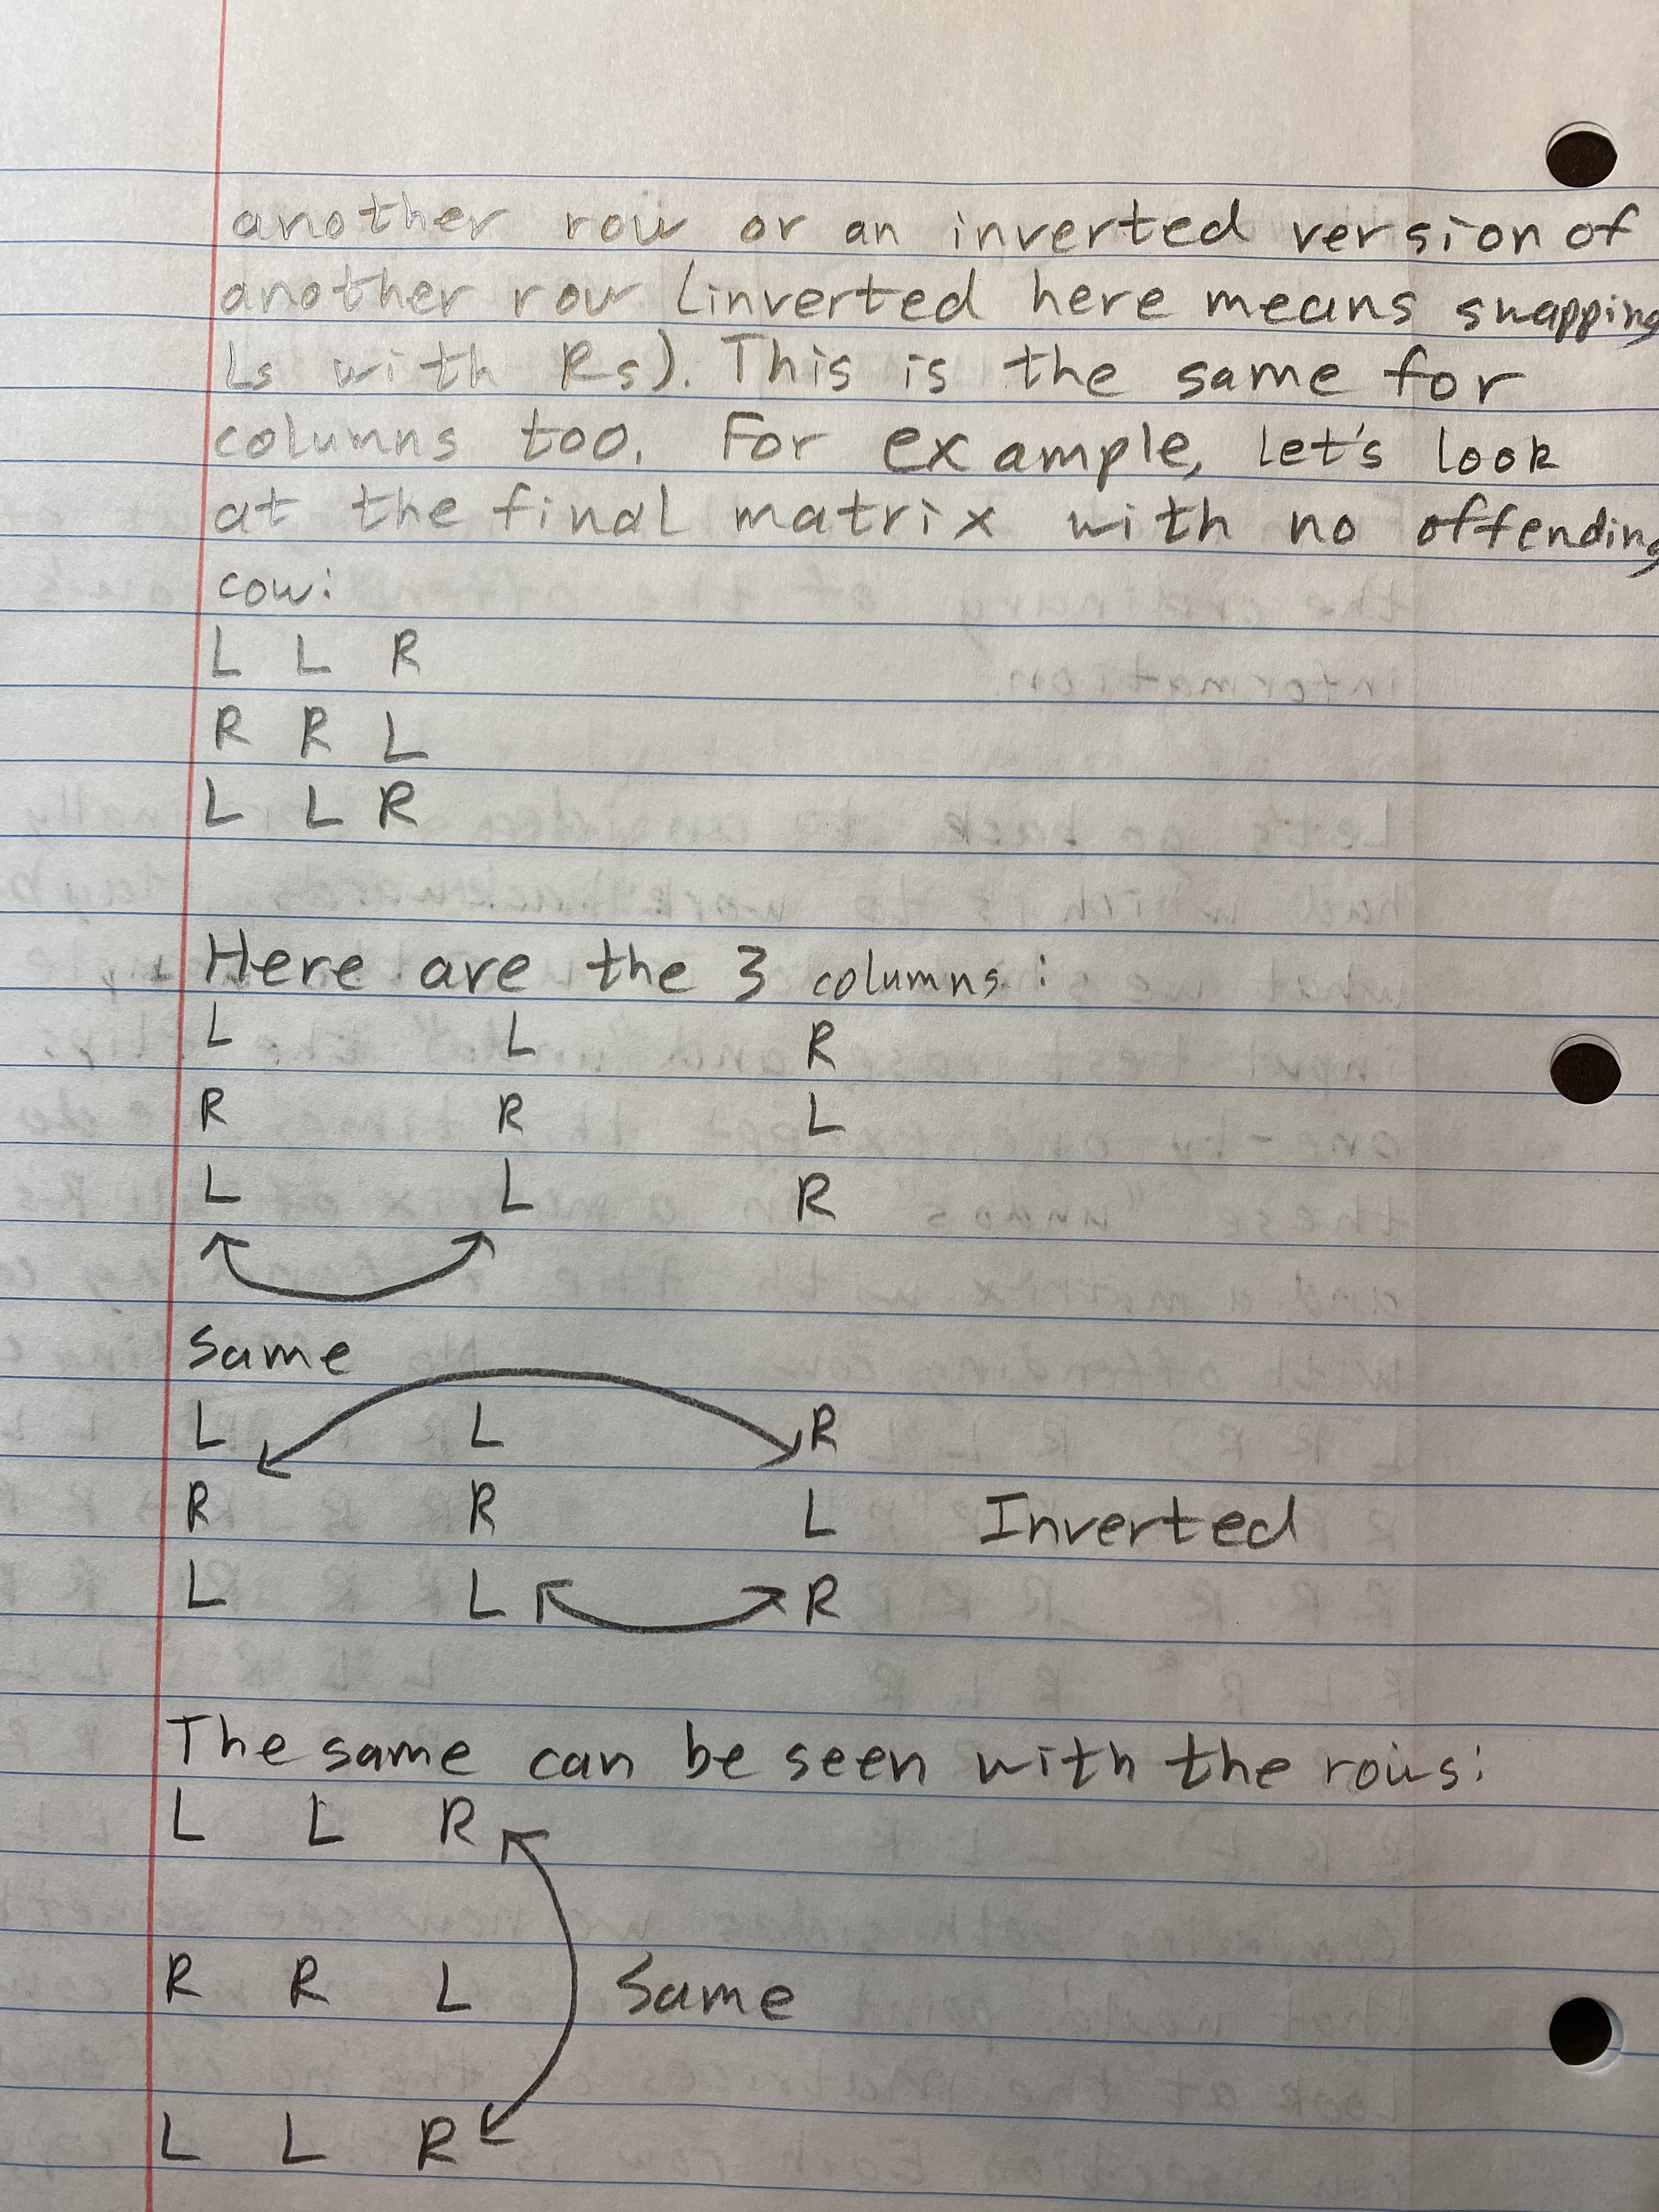 another row or an inverted version of
another row (inverted here means swapping
Ls with Rs). This is the same for
columns too. For example, let's look
at the final matrix with no offending
cow:
L L R
R R L
L L R
Here are the 3 columns:
L L R
R R L
L L R
Same
L L R
R R L Inverted
L L R
The same can be seen with the rows:
L L R
R R L Same
L L R